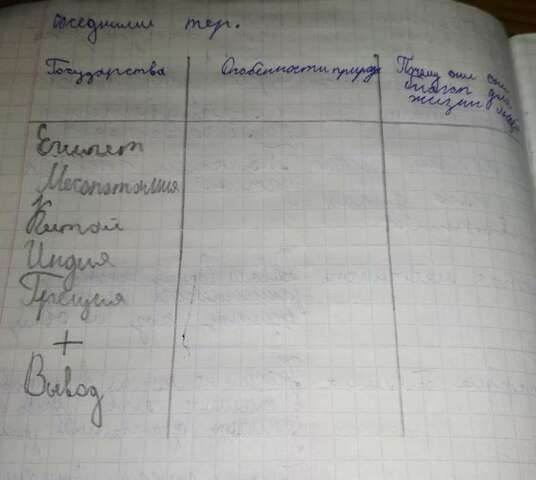 соседними тер.
Государства
Особенности природы
Почему они
благоп для
жизни
Египет
Месопотамия
Китай
Индия
Греция
+
Вывод